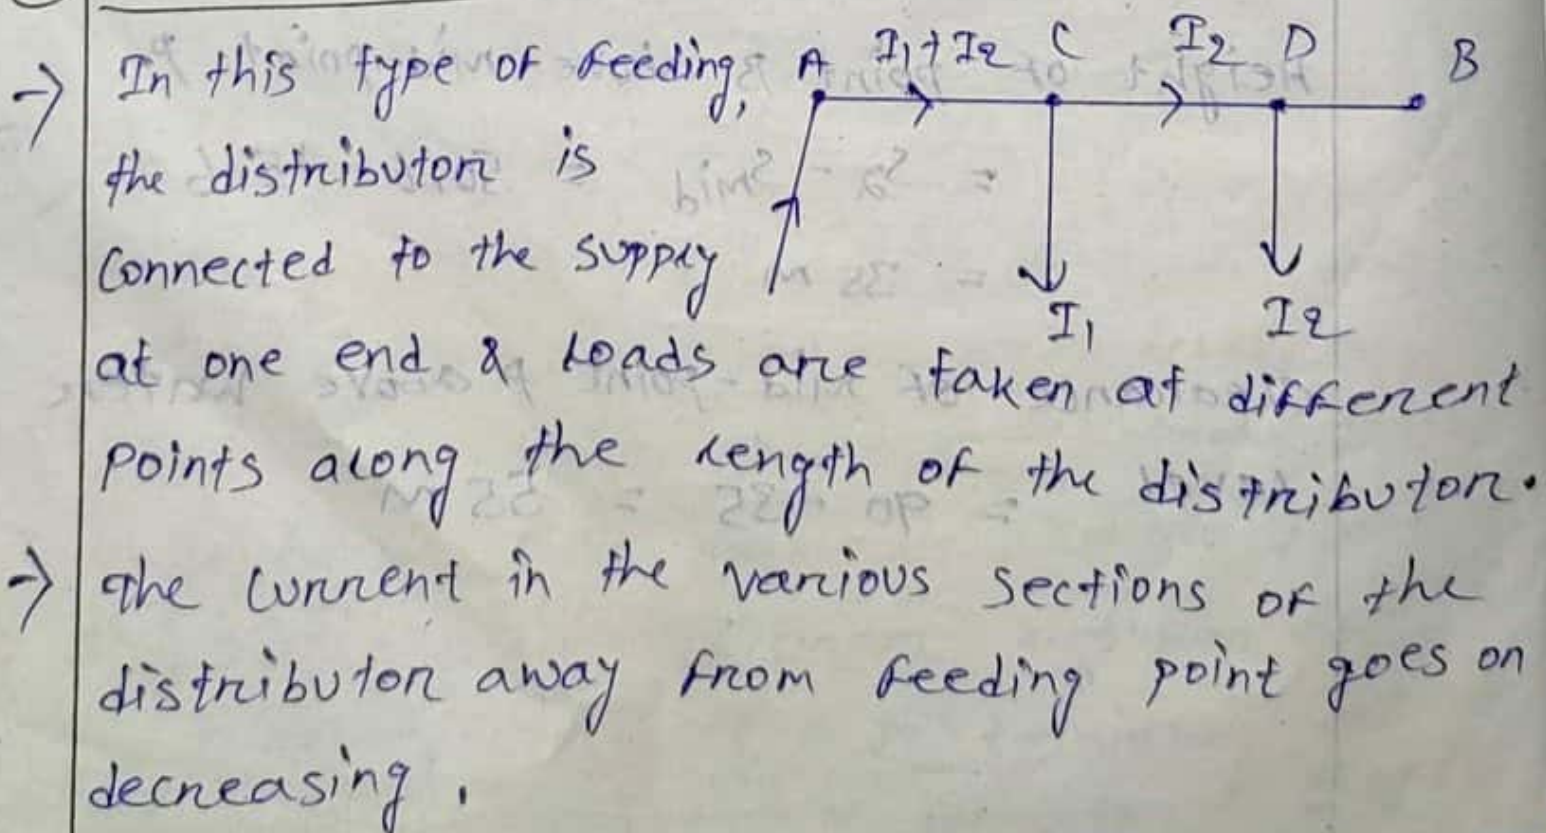 A I₁+I₂ C I₂ D B
→ In this type of feeding,
the distributor is
Connected to the supply
I₁ I₂
at one end & loads are taken at different
points along the length of the distributor.
→ The current in the various sections of the
distributor away from feeding point goes on
decreasing.